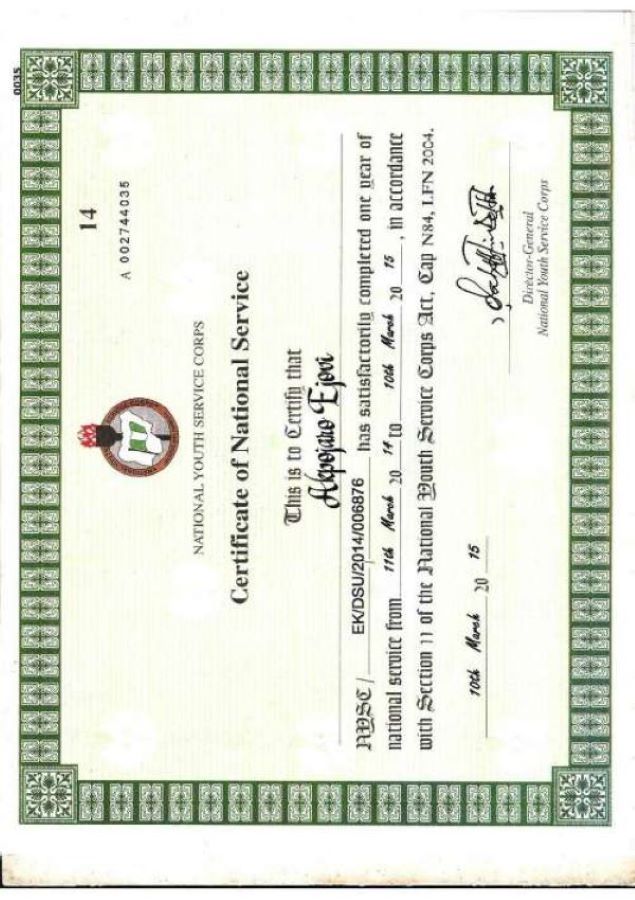 0035
14
A 002744035
NATIONAL YOUTH SERVICE CORPS
Certificate of National Service
This is to Certify that
Akpojaro Ejovi
NYSC/ EK/DSU/2014/006876 has satisfactorily completed one year of
national service from 11th March 20 14 to 10th March 20 15, in accordance
with Section 11 of the National Youth Service Corps Act, Cap N84, LFN 2004.
10th March 20 15
Director-General
National Youth Service Corps